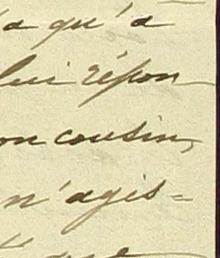 a qu'a
lui répon
on cousin,
n'agis=
que